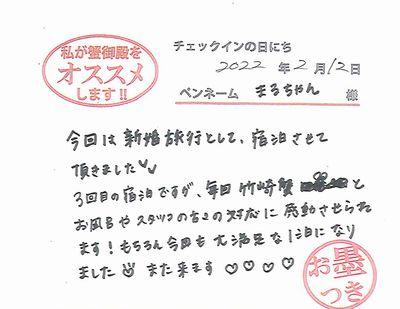 私が蟹御殿を
オススメ
します!!
チェックインの日にち
2022 年 2 月 12 日
ペンネーム まるちゃん 様
今回は新婚旅行として、宿泊させて
頂きました♡♡
3回目の宿泊ですが、毎回竹崎蟹と
お風呂やスタッフの方々の対応に感動させられ
ます!もちろん今回も大満足な1泊になり
ました また来ます ♡♡♡♡
お墨
つき